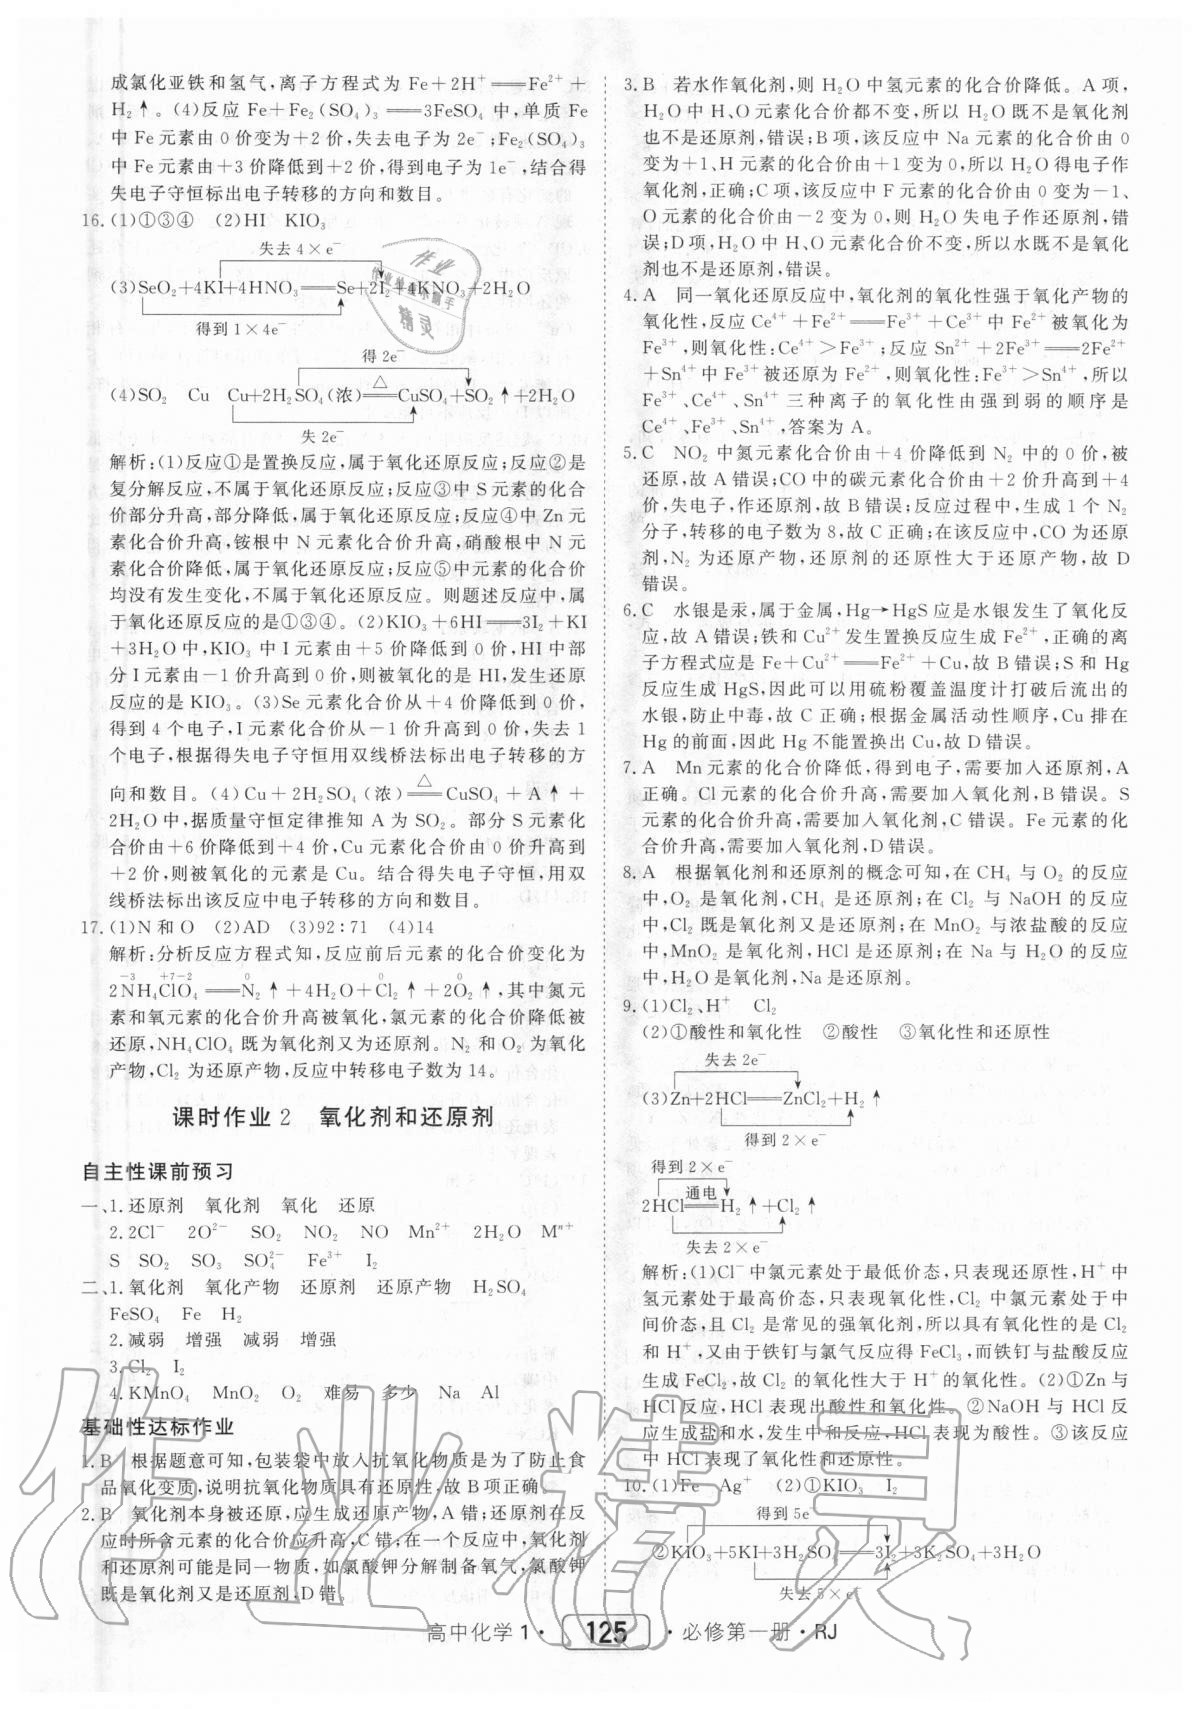 成氯化亚铁和氢气,离子方程式为 Fe+2H⁺══Fe²⁺+
H₂↑。(4)反应 Fe+Fe₂(SO₄)₃══3FeSO₄ 中,单质 Fe
中 Fe 元素由 0 价变为+2 价,失去电子为 2e⁻;Fe₂(SO₄)₃
中 Fe 元素由+3 价降低到+2 价,得到电子为 1e⁻,结合得
失电子守恒标出电子转移的方向和数目。
16.(1)①③④ (2)HI KIO₃
失去 4×e⁻
(3)SeO₂+4KI+4HNO₃══Se+2I₂+4KNO₃+2H₂O
得到 1×4e⁻
得 2e⁻
(4)SO₂ Cu Cu+2H₂SO₄(浓)══△CuSO₄+SO₂↑+2H₂O
失 2e⁻
解析:(1)反应①是置换反应,属于氧化还原反应;反应②是
复分解反应,不属于氧化还原反应;反应③中 S 元素的化合
价部分升高,部分降低,属于氧化还原反应;反应④中 Zn 元
素化合价升高,铵根中 N 元素化合价升高,硝酸根中 N 元
素化合价降低,属于氧化还原反应;反应⑤中元素的化合价
均没有发生变化,不属于氧化还原反应。则题述反应中,属
于氧化还原反应的是①③④。(2)KIO₃+6HI══3I₂+KI
+3H₂O 中,KIO₃ 中 I 元素由+5 价降低到 0 价,HI 中部
分 I 元素由-1 价升高到 0 价,则被氧化的是 HI,发生还原
反应的是 KIO₃。(3)Se 元素化合价从+4 价降低到 0 价,
得到 4 个电子,I 元素化合价从-1 价升高到 0 价,失去 1
个电子,根据得失电子守恒用双线桥法标出电子转移的方
向和数目。(4)Cu+2H₂SO₄(浓)══△CuSO₄+A↑+
2H₂O 中,据质量守恒定律推知 A 为 SO₂。部分 S 元素化
合价由+6 价降低到+4 价,Cu 元素化合价由 0 价升高到
+2 价,则被氧化的元素是 Cu。结合得失电子守恒,用双
线桥法标出该反应中电子转移的方向和数目。
17.(1)N 和 O (2)AD (3)92∶71 (4)14
解析:分析反应方程式知,反应前后元素的化合价变化为
-3 +7-2 0 0 0
2NH₄ClO₄══N₂↑+4H₂O+Cl₂↑+2O₂↑,其中氮元
素和氧元素的化合价升高被氧化,氯元素的化合价降低被
还原,NH₄ClO₄ 既为氧化剂又为还原剂。N₂ 和 O₂ 为氧化
产物,Cl₂ 为还原产物,反应中转移电子数为 14。
课时作业 2 氧化剂和还原剂
自主性课前预习
一、1.还原剂 氧化剂 氧化 还原
2.2Cl⁻ 2O²⁻ SO₂ NO₂ NO Mn²⁺ 2H₂O Mⁿ⁺
S SO₂ SO₃ SO₄²⁻ Fe³⁺ I₂
二、1.氧化剂 氧化产物 还原剂 还原产物 H₂SO₄
FeSO₄ Fe H₂
2.减弱 增强 减弱 增强
3.Cl₂ I₂
4.KMnO₄ MnO₂ O₂ 难易 多少 Na Al
基础性达标作业
1.B 根据题意可知,包装袋中放入抗氧化物质是为了防止食
品氧化变质,说明抗氧化物质具有还原性,故 B 项正确。
2.B 氧化剂本身被还原,应生成还原产物,A 错;还原剂在反
应时所含元素的化合价应升高,C 错;在一个反应中,氧化剂
和还原剂可能是同一物质,如氯酸钾分解制备氧气,氯酸钾
既是氧化剂又是还原剂,D 错。
3.B 若水作氧化剂,则 H₂O 中氢元素的化合价降低。A 项,
H₂O 中 H、O 元素化合价都不变,所以 H₂O 既不是氧化剂
也不是还原剂,错误;B 项,该反应中 Na 元素的化合价由 0
变为+1、H 元素的化合价由+1 变为 0,所以 H₂O 得电子作
氧化剂,正确;C 项,该反应中 F 元素的化合价由 0 变为-1、
O 元素的化合价由-2 变为 0,则 H₂O 失电子作还原剂,错
误;D 项,H₂O 中元素化合价不变,所以水既不是氧化
剂也不是还原剂,错误。
4.A 同一氧化还原反应中,氧化剂的氧化性强于氧化产物的
氧化性,反应 Ce⁴⁺+Fe²⁺══Fe³⁺+Ce³⁺ 中 Fe²⁺ 被氧化为
Fe³⁺,则氧化性:Ce⁴⁺>Fe³⁺;反应 Sn²⁺+2Fe³⁺══2Fe²⁺
+Sn⁴⁺ 中 Fe³⁺ 被还原为 Fe²⁺,则氧化性:Fe³⁺>Sn⁴⁺,所以
Fe³⁺、Ce⁴⁺、Sn⁴⁺ 三种离子的氧化性由强到弱的顺序是
Ce⁴⁺、Fe³⁺、Sn⁴⁺,答案为 A。
5.C NO₂ 中氮元素化合价由+4 价降低到 N₂ 中的 0 价,被
还原,故 A 错误;CO 中的碳元素化合价由+2 价升高到+4
价,失电子,作还原剂,故 B 错误;反应过程中,生成 1 个 N₂
分子,转移的电子数为 8,故 C 正确;在该反应中,CO 为还原
剂,N₂ 为还原产物,还原剂的还原性大于还原产物,故 D
错误。
6.C 水银是汞,属于金属,Hg→HgS 应是水银发生了氧化反
应,故 A 错误;铁和 Cu²⁺ 发生置换反应生成 Fe²⁺,正确的离
子方程式应是 Fe+Cu²⁺══Fe²⁺+Cu,故 B 错误;S 和 Hg
反应生成 HgS,因此可以用硫粉覆盖温度计打破后流出的
水银,防止中毒,故 C 正确;根据金属活动性顺序,Cu 排在
Hg 的前面,因此 Hg 不能置换出 Cu,故 D 错误。
7.A Mn 元素的化合价降低,得到电子,需要加入还原剂,A
正确。Cl 元素的化合价升高,需要加入氧化剂,B 错误。S
元素的化合价升高,需要加入氧化剂,C 错误。Fe 元素的化
合价升高,需要加入氧化剂,D 错误。
8.A 根据氧化剂和还原剂的概念可知,在 CH₄ 与 O₂ 的反应
中,O₂ 是氧化剂,CH₄ 是还原剂;在 Cl₂ 与 NaOH 的反应
中,Cl₂ 既是氧化剂又是还原剂;在 MnO₂ 与浓盐酸的反应
中,MnO₂ 是氧化剂,HCl 是还原剂;在 Na 与 H₂O 的反应
中,H₂O 是氧化剂,Na 是还原剂。
9.(1)Cl₂、H⁺ Cl₂
(2)①酸性和氧化性 ②酸性 ③氧化性和还原性
失去 2e⁻
(3)Zn+2HCl══ZnCl₂+H₂↑
得到 2×e⁻
得到 2×e⁻
2HCl══通电H₂↑+Cl₂↑
失去 2×e⁻
解析:(1)Cl⁻ 中氯元素处于最低价态,只表现还原性,H⁺ 中
氢元素处于最高价态,只表现氧化性,Cl₂ 中氯元素处于中
间价态,且 Cl₂ 是常见的强氧化剂,所以具有氧化性的是 Cl₂
和 H⁺,又由于铁钉与氯气反应得 FeCl₃,而铁钉与盐酸反应
生成 FeCl₂,故 Cl₂ 的氧化性大于 H⁺ 的氧化性。(2)①Zn 与
HCl 反应,HCl 表现出酸性和氧化性。②NaOH 与 HCl 反
应生成盐和水,发生中和反应,HCl 表现为酸性。③该反应
中 HCl 表现了氧化性和还原性。
10.(1)Fe Ag⁺ (2)①KIO₃ I₂
得到 5e⁻
②KIO₃+5KI+3H₂SO₄══3I₂+3K₂SO₄+3H₂O
失去 5×e⁻
高中化学 1 · 125 · 必修第一册 · RJ
作业精灵